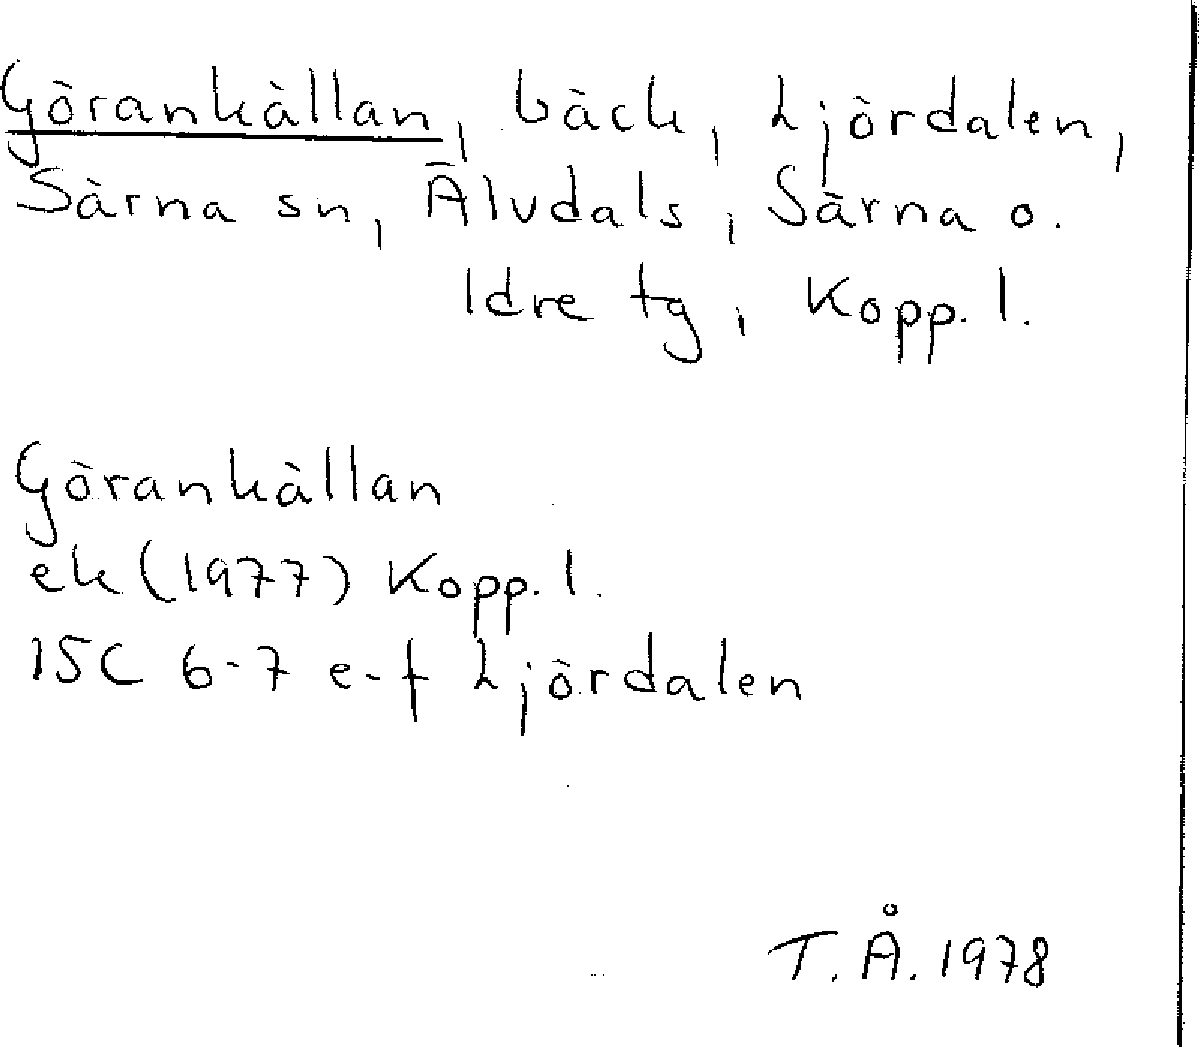 Görankällan, bäck, Ljördalen,
Särna sn, Älvdals, Särna o.
Idre tg, Kopp. l.
Görankällan
ek (1977) Kopp. l.
15C 6-7 e-f Ljördalen
T. Å. 1978